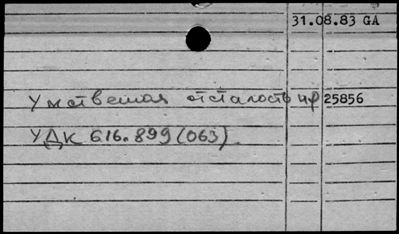 31.08.83 GA
Умственная отсталость нф 25856
УДК 616.899(063)